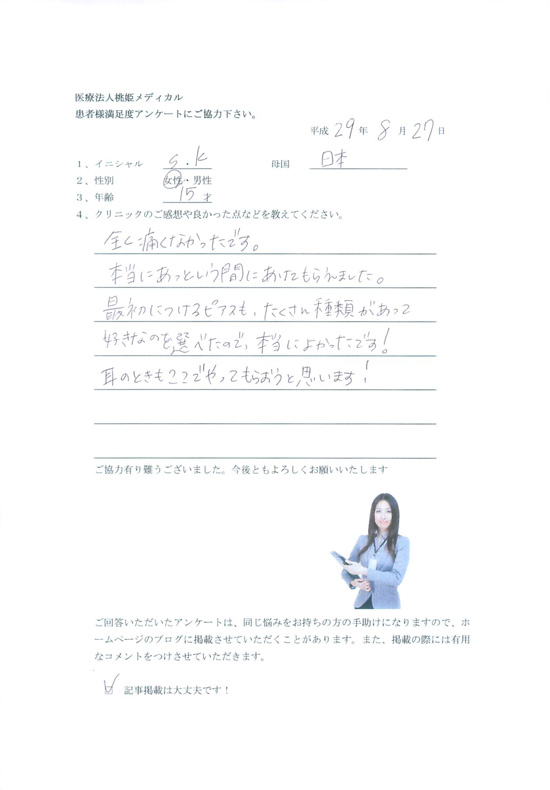 医療法人桃姫メディカル
患者様満足度アンケートにご協力下さい。
平成 29 年 8 月 27 日
1、イニシャル S.K 母国 日本
2、性別 女性・男性
3、年齢 15 才
4、クリニックのご感想や良かった点などを教えてください。
全く痛くなかったです。
本当にあっという間にあけてもらえました。
最初につけるピアスも、たくさん種類があって
好きなのを選べたので、本当によかったです!
耳のときもここでやってもらおうと思います!
ご協力有り難うございました。今後ともよろしくお願いいたします
ご回答いただいたアンケートは、同じ悩みをお持ちの方の手助けになりますので、ホ
ームページのブログに掲載させていただくことがあります。また、掲載の際には有用
なコメントをつけさせていただきます。
☑ 記事掲載は大丈夫です!